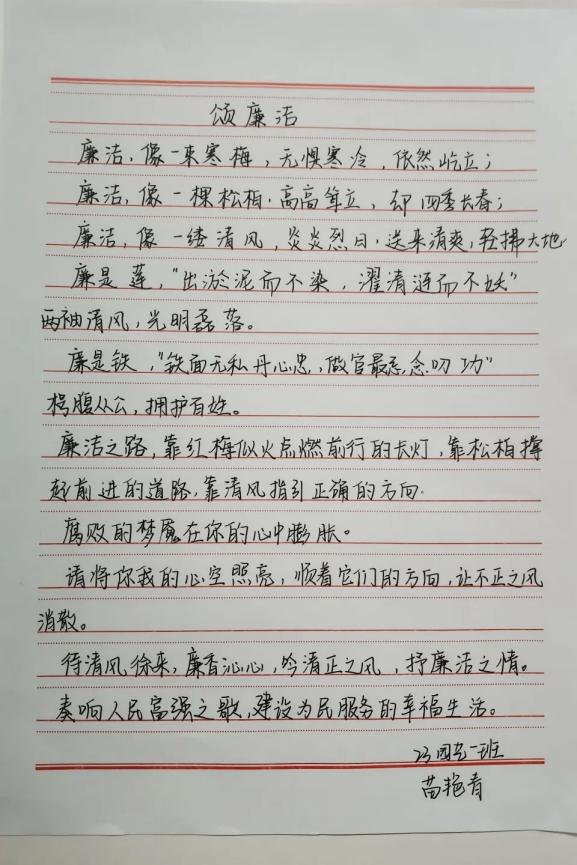 颂廉洁
廉洁，像一束寒梅，无惧寒冷，依然屹立；
廉洁，像一棵松柏，高高耸立，却四季长春；
廉洁，像一缕清风，炎炎烈日，送来清爽，轻拂大地
廉是莲，“出淤泥而不染，濯清涟而不妖”
两袖清风，光明磊落。
廉是铁，“铁面无私丹心忠，做官最忌念叨功”
枵腹从公，拥护百姓。
廉洁之路，靠红梅似火点燃前行的长灯，靠松柏撑
起前进的道路，靠清风指引正确的方向.
腐败的梦魇在你的心中膨胀。
请将你我的心空照亮，顺着它们的方向，让不正之风
消散。
待清风徐来，廉香沁心，吟清正之风，抒廉洁之情。
奏响人民富强之歌，建设为民服务的幸福生活。
一班
苗艳青